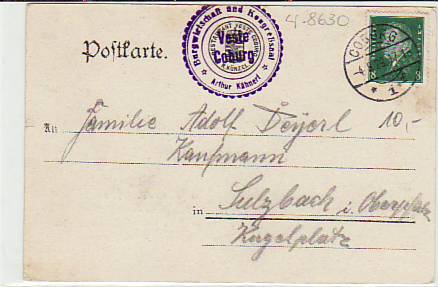 4-8630
Burgwirtschaft und Kongreßsaal
Veste
Coburg
Arthur Kähnert
COBURG
8 8
Postkarte.
10,-
An Familie Adolf Deyerl
Kaufmann
in Sulzbach i. Oberpfalz
Kugelplatz